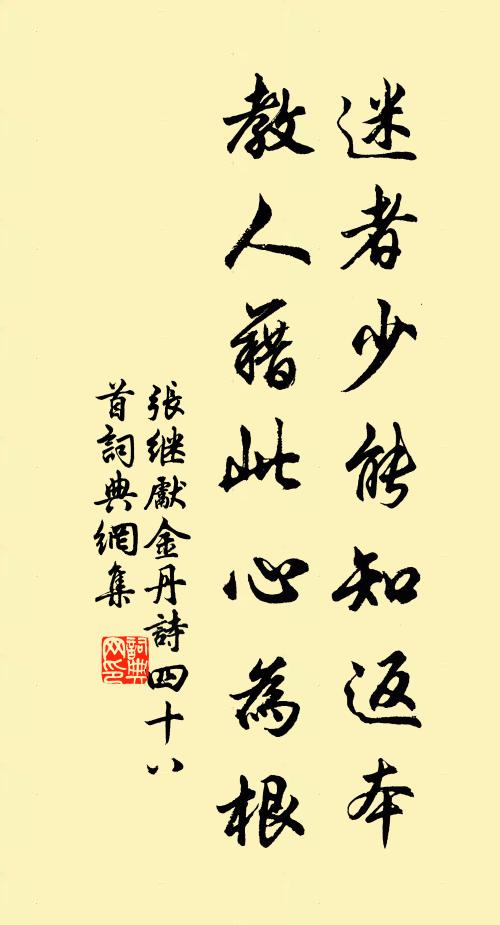 迷者少能知返本
教人藉此心為根
張继獻金丹詩四十八
首詞典網集
詞典
网印